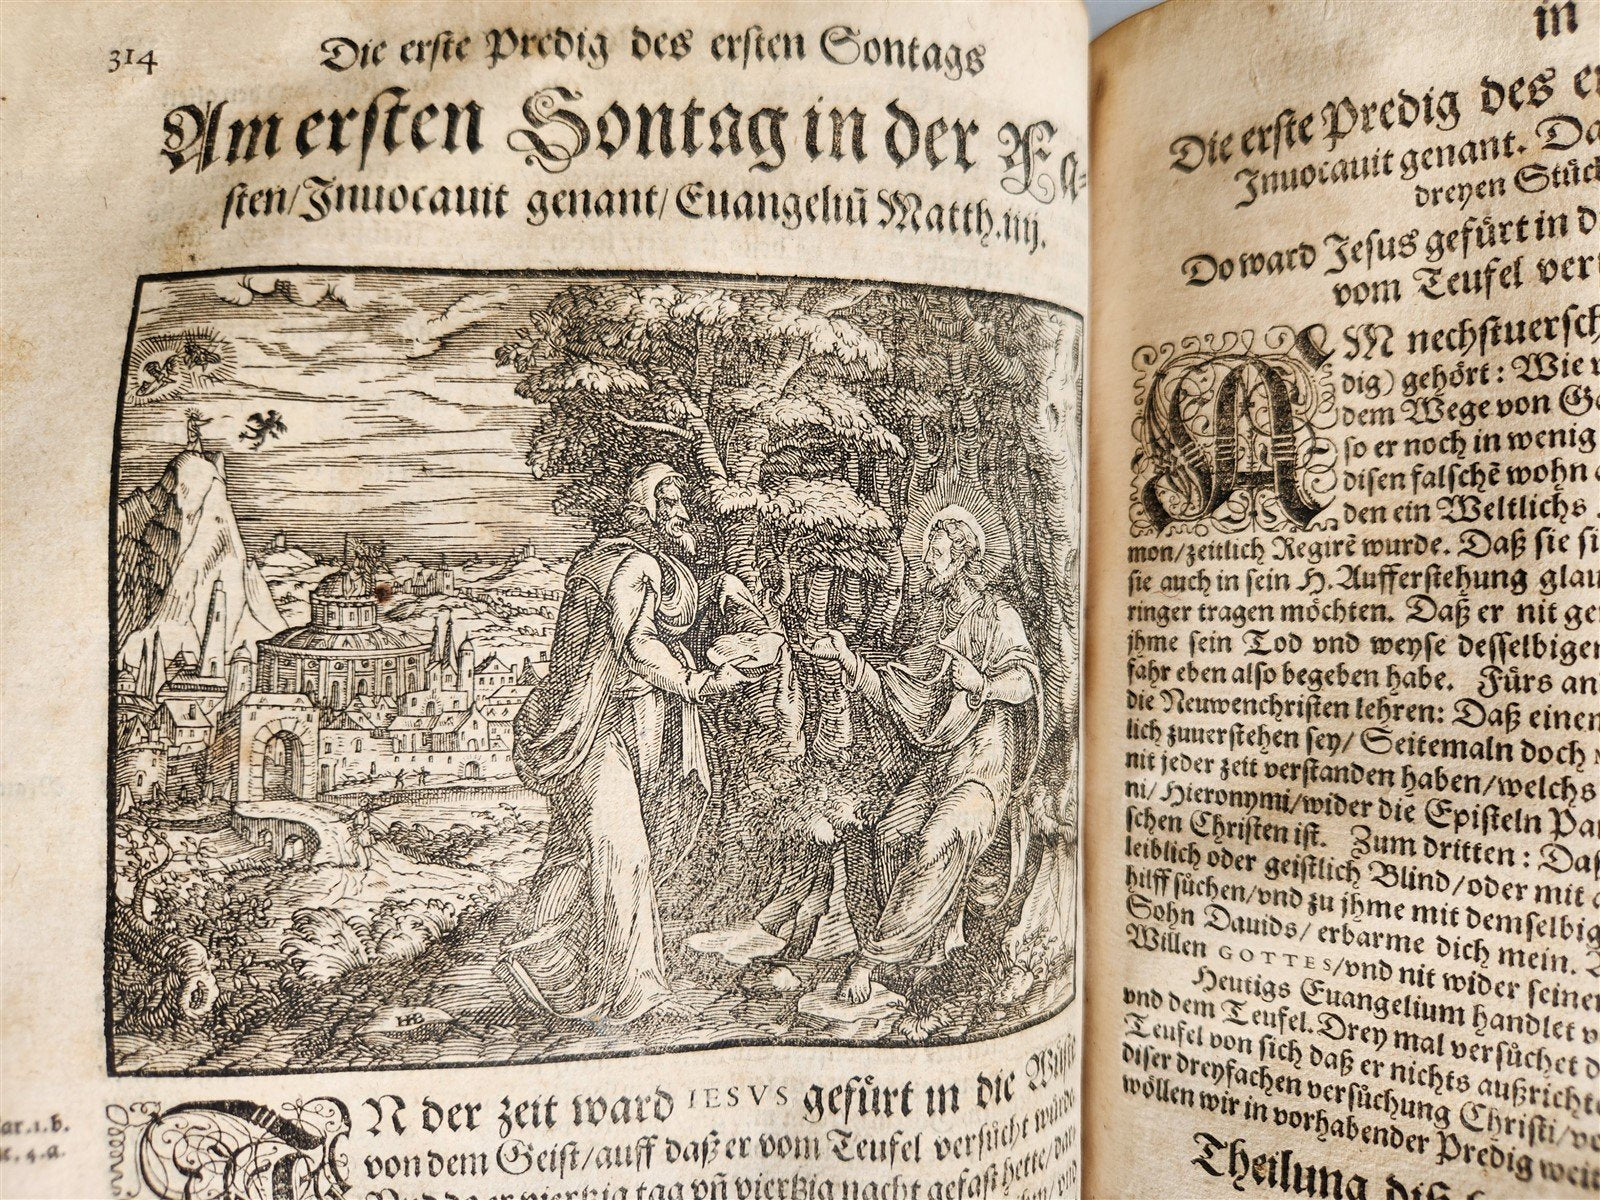 314
Die erste Predig des ersten Sontags
Am ersten Sontag in der Fa-
sten/Jnuocauit genant/Euangeliū Matth.iiij.
HB
IN der zeit ward IESVS gefürt in die Wüste
von dem Geist/auff daß er vom Teufel versůcht würde
Vnd da er viertzig tag vñ viertzig nacht gefast hette/
ar.1.b.
4.a.
in
Die erste Predig des
Jnuocauit genant. Da
dreyen Stück
Do ward Jesus gefürt in
vom Teufel
AM nechstuersch
dig) gehört: Wie
dem Wege von
so er noch in wenig
disen falschē wohn
den ein Weltlichs
mon/zeitlich Regirē wurde. Daß sie
sie auch in sein H. Aufferstehung
ringer tragen möchten. Daß er nit
jhme sein Tod vnd weyse desselbigen
fahr eben also begeben habe. Fürs an
die Neuwenchristen lehren: Daß einen
lich zuuerstehen sey/ Seitemaln doch
nit jeder zeit verstanden haben/welchs
ni/Hieronymi/wider die Episteln
schen Christen ist. Zum dritten: Daß
leiblich oder geistlich Blind/oder mit
hilff sůchen/vnd zu jhme mit demselbig
Sohn Dauids/ erbarme dich mein.
Willen GOTTES/vnd nit wider seinen
Heutigs Euangelium handlet
vnd dem Teufel. Drey mal versůchet
Teufel von sich daß er nichts außricht
diser dreyfachen versůchung Christi/
wöllen wir in vorhabender Predig weit
Theilung